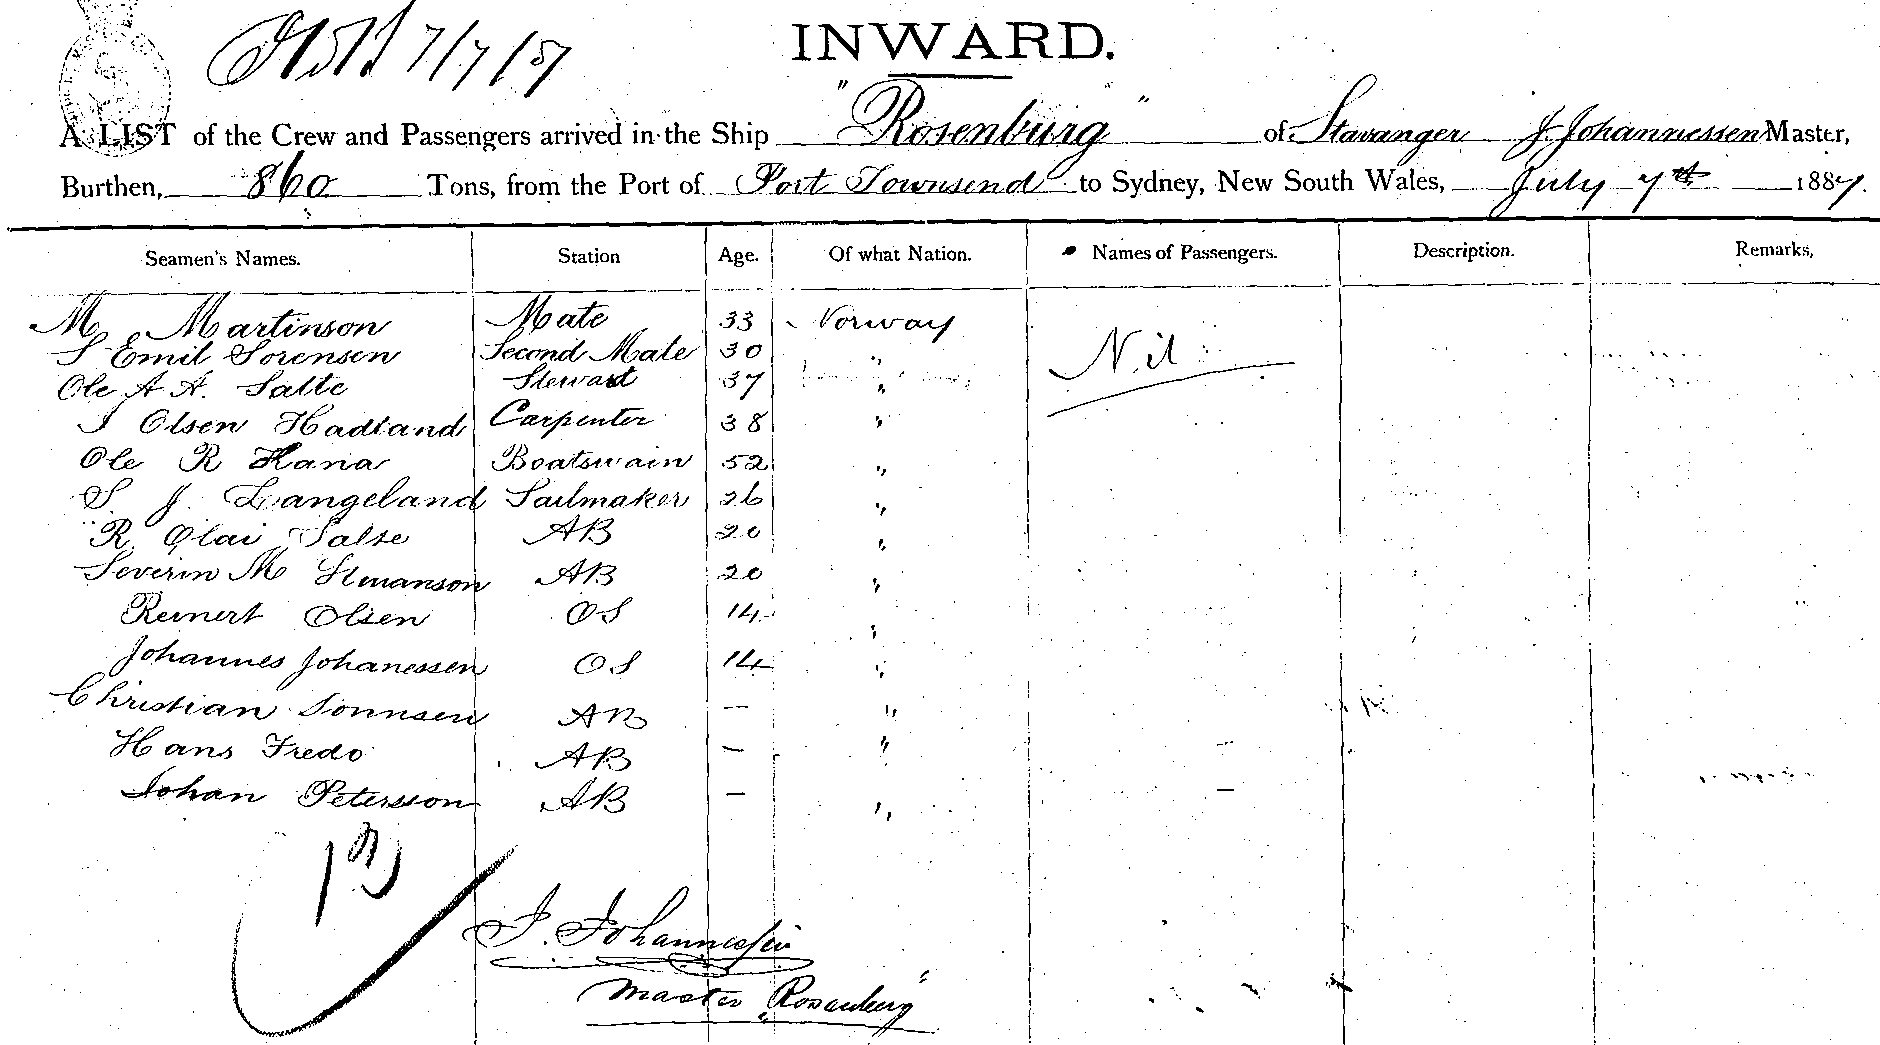 7/7/87
INWARD.
A LIST of the Crew and Passengers arrived in the Ship "Rosenburg" of Stavanger J. Johannessen Master,
Burthen, 860 Tons, from the Port of Port Townsend to Sydney, New South Wales, July 7th 1887.
Seamen's Names. Station Age. Of what Nation. Names of Passengers. Description. Remarks,
M Martinson Mate 33 Norway Nil
S Emil Sorensen Second Mate 30 "
Ole A A. Salte Steward 37 "
I Olsen Hadland Carpenter 38 "
Ole R Hana Boatswain 52 "
S. J. Langeland Sailmaker 26 "
R Olai Salte AB 20 "
Severin M AB 20 "
Reinert Olsen OS 14 "
Johannes Johanessen OS 14 "
Christian Sonnsen AB — "
Hans Fredo AB — "
Johan Petersson AB — "
13
J. Johannessen
Master "Rosenburg"